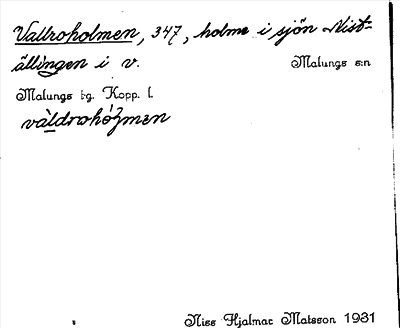 Vallroholmen, 347, holme i sjön Nist-
ällingen i v. Malungs s:n
Malungs tg. Kopp. l.
vàldrohó
Niss Hjalmar Matsson 1931